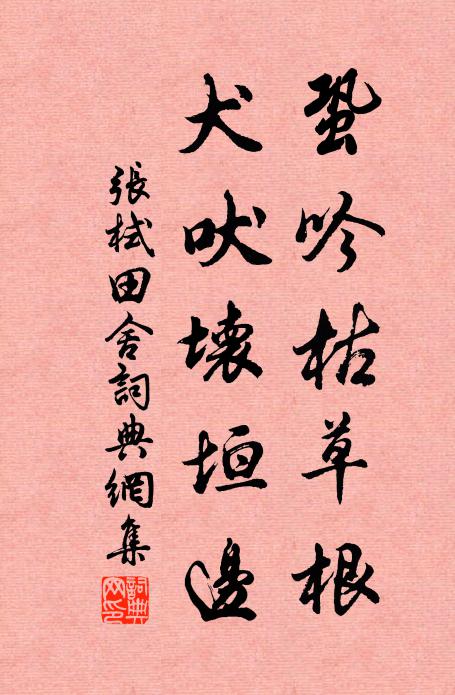 蛩吟枯草根
犬吠壞垣邊
張栻田舍詞典網集
詞典
网印